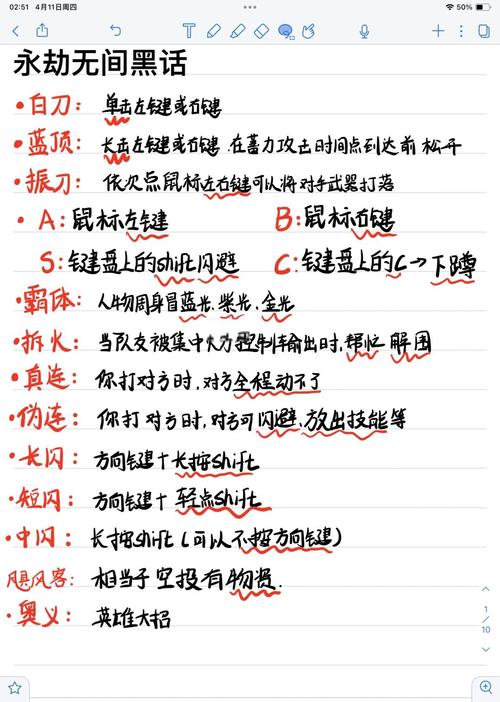 02:51 4月11日周四
50%
永劫无间黑话
•白刀：单击左键或右键
•蓝顶：长击左键或右键.在蓄力攻击时间点到达前松开
•振刀：依次点鼠标左右键可以将对手武器打落
•A：鼠标左键 B：鼠标右键
S：键盘上的shift闪避 C：键盘上的C→下蹲
•霸体：人物周身冒蓝光.紫光.金光
•拆火：当队友被集中火力控制输出时,帮忙解围
•真连：你打对方时,对方全程动不了
•伪连：你打对方时,对方可闪避.放出技能等
•长闪：方向键+长按shift
•短闪：方向键+轻点shift
•中闪：长按shift(可以不按方向键)
飓风客：相当于空投有物资.
•奥义：英雄大招
1
/
10